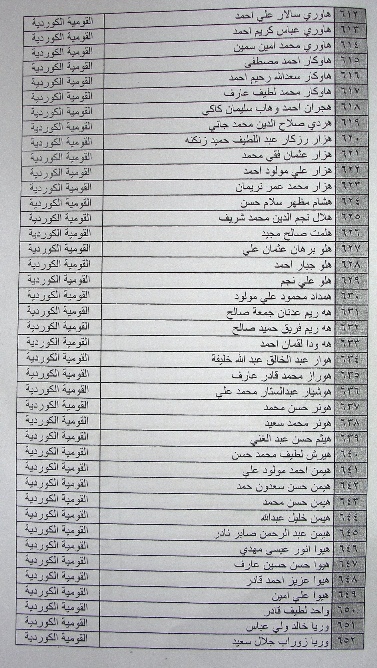 ٦١٢ هاوري سالار علي احمد القومية الكوردية
٦١٣ هاوري عباس كريم احمد القومية الكوردية
٦١٤ هاوري محمد امين سمين القومية الكوردية
٦١٥ هاوكار احمد مصطفى القومية الكوردية
٦١٦ هاوكار سعدالله رحيم احمد القومية الكوردية
٦١٧ هاوكار محمد لطيف عارف القومية الكوردية
٦١٨ هجران احمد وهاب سليمان كاكي القومية الكوردية
٦١٩ هردي صلاح الدين محمد جاني القومية الكوردية
٦٢٠ هزار رزكار عبد اللطيف حميد زنكنه القومية الكوردية
٦٢١ هزار عثمان فقي محمد القومية الكوردية
٦٢٢ هزار علي مولود احمد القومية الكوردية
٦٢٣ هزار محمد عمر نريمان القومية الكوردية
٦٢٤ هشام مظهر سلام حسن القومية الكوردية
٦٢٥ هلال نجم الدين محمد شريف القومية الكوردية
٦٢٦ هلمت صالح مجيد القومية الكوردية
٦٢٧ هلو برهان عثمان علي القومية الكوردية
٦٢٨ هلو جبار احمد القومية الكوردية
٦٢٩ هلو علي نجم القومية الكوردية
٦٣٠ همداد محمود علي مولود القومية الكوردية
٦٣١ هه ريم عدنان جمعة صالح القومية الكوردية
٦٣٢ هه ريم فريق حميد صالح القومية الكوردية
٦٣٣ هه ودا لقمان احمد القومية الكوردية
٦٣٤ هوار عبد الخالق عبد الله خليفة القومية الكوردية
٦٣٥ هوراز محمد قادر عارف القومية الكوردية
٦٣٦ هوشيار عبدالستار محمد علي القومية الكوردية
٦٣٧ هونر حسن محمد القومية الكوردية
٦٣٨ هونر محمد سعيد القومية الكوردية
٦٣٩ هيثم حسن عبد الغني القومية الكوردية
٦٤٠ هيرش لطيف محمد حسن القومية الكوردية
٦٤١ هيمن احمد مولود علي القومية الكوردية
٦٤٢ هيمن حسن سعدون حمد القومية الكوردية
٦٤٣ هيمن حسن محمد القومية الكوردية
٦٤٤ هيمن خليل عبدالله القومية الكوردية
٦٤٥ هيمن عبد الرحمن صابر نادر القومية الكوردية
٦٤٦ هيوا انور عيسى مهدي القومية الكوردية
٦٤٧ هيوا حسن حسين عارف القومية الكوردية
٦٤٨ هيوا عزيز احمد قادر القومية الكوردية
٦٤٩ هيوا علي امين القومية الكوردية
٦٥٠ واحد لطيف قادر القومية الكوردية
٦٥١ وريا خالد ولي عباس القومية الكوردية
٦٥٢ وريا زوراب جلال سعيد القومية الكوردية